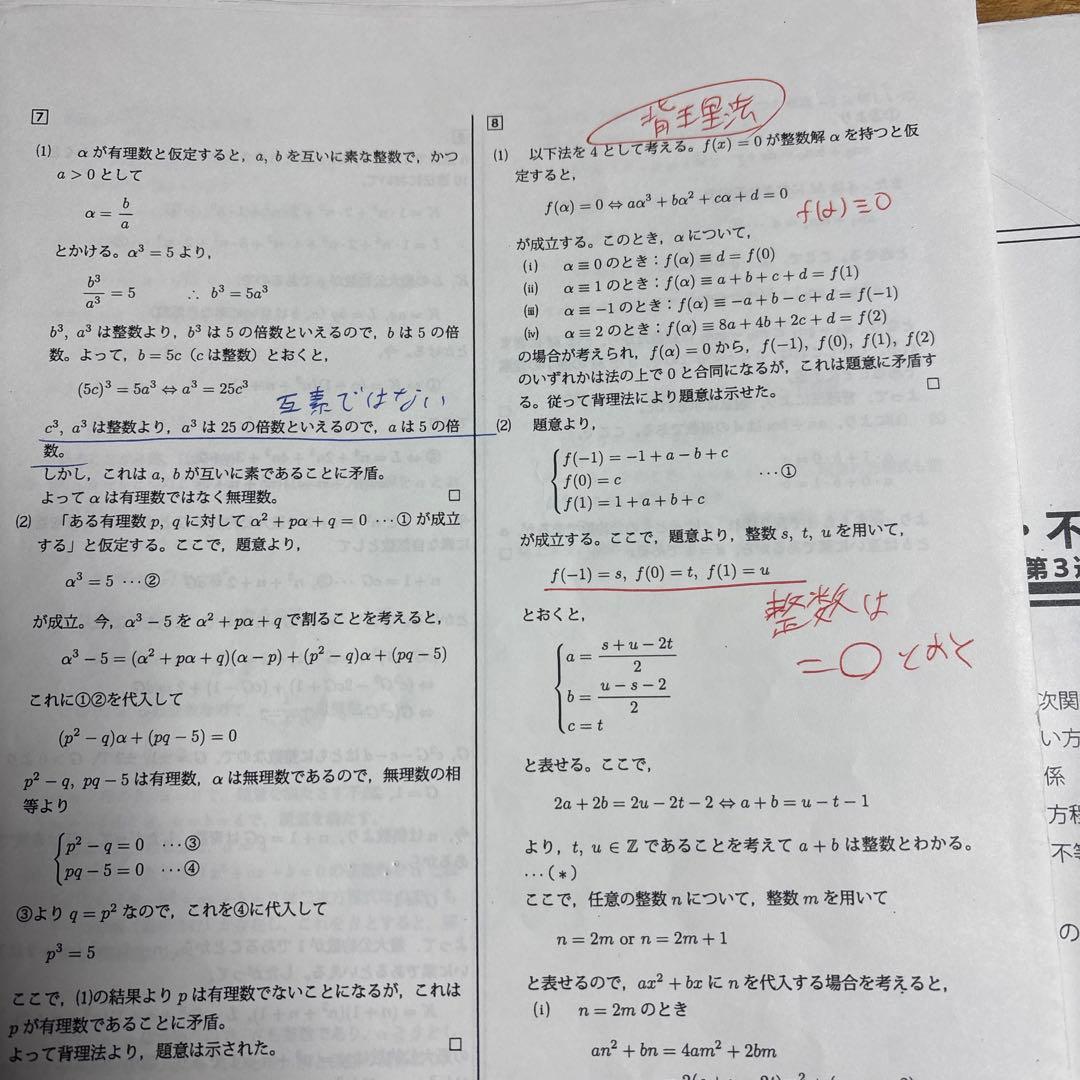 7
(1) αが有理数と仮定すると，a, bを互いに素な整数で，かつ
a > 0 として
α = b/a
とかける。α³ = 5 より，
b³/a³ = 5 ∴ b³ = 5a³
b³, a³ は整数より，b³ は 5 の倍数といえるので，b は 5 の倍
数。よって，b = 5c（c は整数）とおくと，
(5c)³ = 5a³ ⇔ a³ = 25c³
互素ではない
c³, a³ は整数より，a³ は 25 の倍数といえるので，a は 5 の倍
数。
しかし，これは a, b が互いに素であることに矛盾。
よって α は有理数ではなく無理数。 □
(2) 「ある有理数 p, q に対して α² + pα + q = 0 …① が成立
する」と仮定する。ここで，題意より，
α³ = 5 …②
が成立。今，α³ − 5 を α² + pα + q で割ることを考えると，
α³ − 5 = (α² + pα + q)(α − p) + (p² − q)α + (pq − 5)
これに①②を代入して
(p² − q)α + (pq − 5) = 0
p² − q, pq − 5 は有理数，α は無理数であるので，無理数の相
等より
p² − q = 0 …③
pq − 5 = 0 …④
③より q = p² なので，これを④に代入して
p³ = 5
ここで，(1)の結果より p は有理数でないことになるが，これは
p が有理数であることに矛盾。
よって背理法より，題意は示された。 □
8
背理法
(1) 以下法を 4 として考える。f(x) = 0 が整数解 α を持つと仮
定すると，
f(α) = 0 ⇔ aα³ + bα² + cα + d = 0
f(α) ≡ 0
が成立する。このとき，α について，
(i) α ≡ 0 のとき：f(α) ≡ d = f(0)
(ii) α ≡ 1 のとき：f(α) ≡ a + b + c + d = f(1)
(iii) α ≡ −1 のとき：f(α) ≡ −a + b − c + d = f(−1)
(iv) α ≡ 2 のとき：f(α) ≡ 8a + 4b + 2c + d = f(2)
の場合が考えられ，f(α) = 0 から，f(−1), f(0), f(1), f(2)
のいずれかは法の上で 0 と合同になるが，これは題意に矛盾す
る。従って背理法により題意は示せた。 □
(2) 題意より，
f(−1) = −1 + a − b + c
f(0) = c …①
f(1) = 1 + a + b + c
が成立する。ここで，題意より，整数 s, t, u を用いて，
f(−1) = s, f(0) = t, f(1) = u
整数は
=○とおく
とおくと，
a = (s + u − 2t)/2
b = (u − s − 2)/2
c = t
と表せる。ここで，
2a + 2b = 2u − 2t − 2 ⇔ a + b = u − t − 1
より，t, u ∈ ℤ であることを考えて a + b は整数とわかる。
…(＊)
ここで，任意の整数 n について，整数 m を用いて
n = 2m or n = 2m + 1
と表せるので，ax² + bx に n を代入する場合を考えると，
(i) n = 2m のとき
an² + bn = 4am² + 2bm
・不
第3
次関
い方
係
方程
不等
の